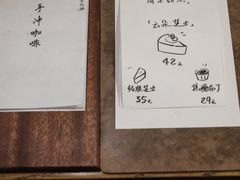 手冲咖啡
「云朵芝士」
42元
纽约芝士
35元
焦糖布丁
29元